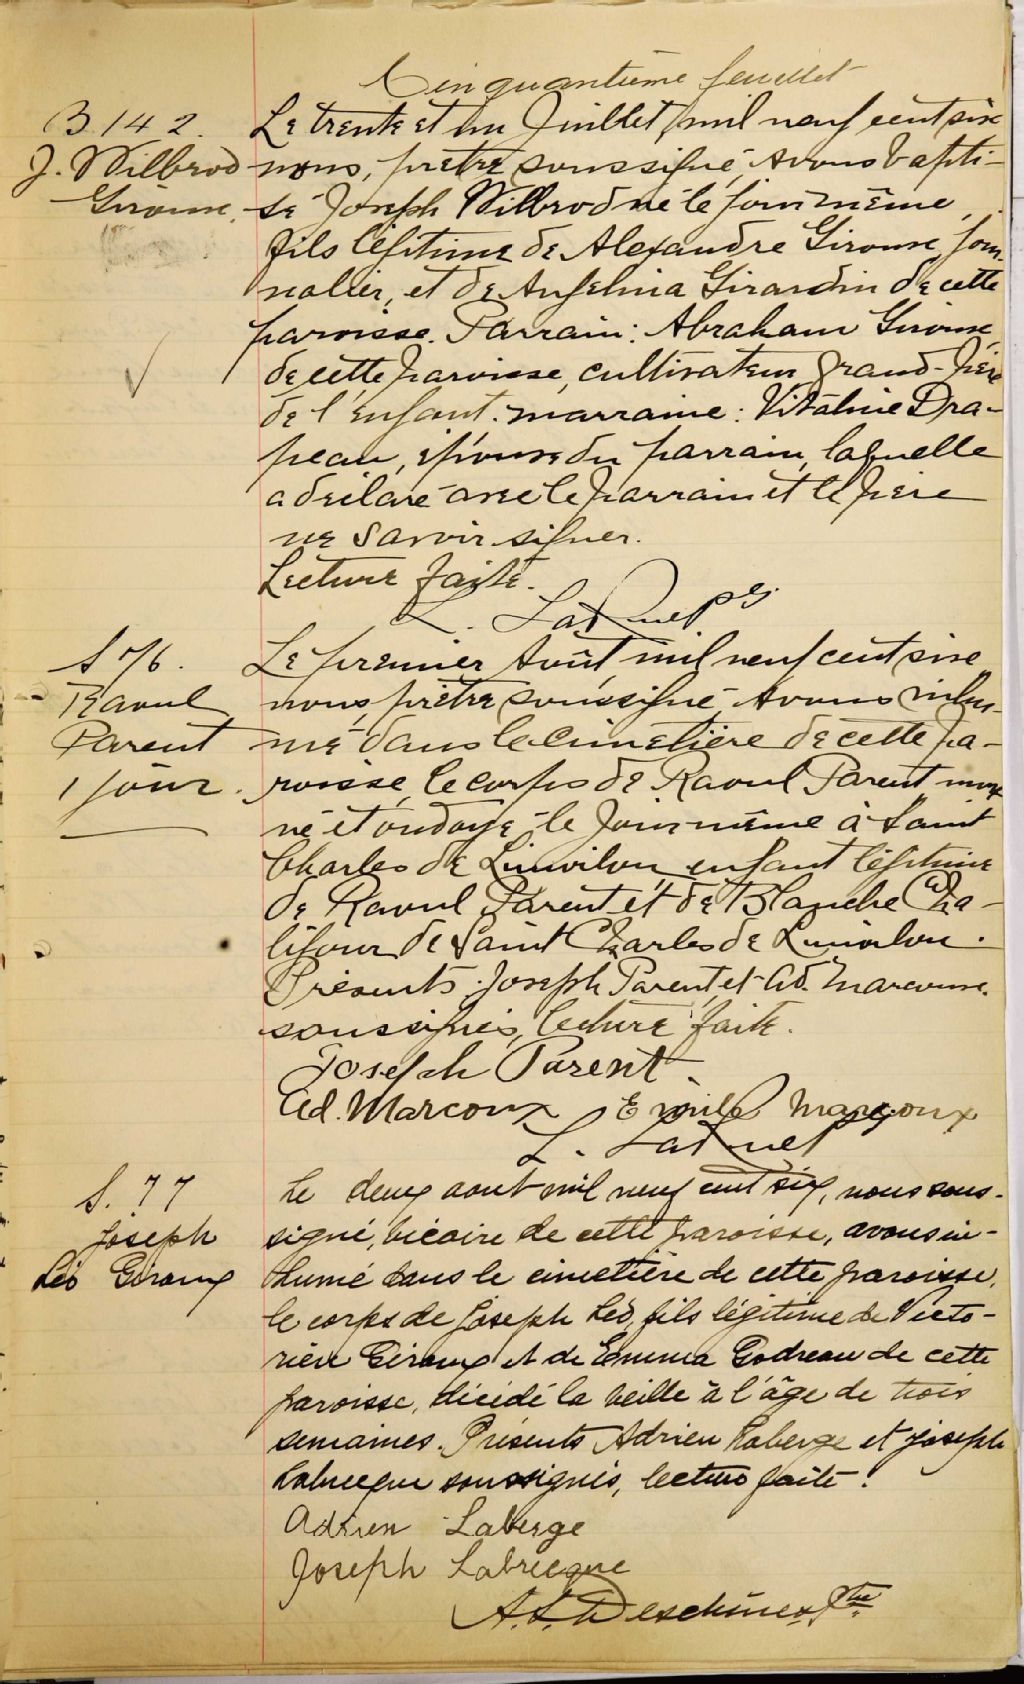 Cinquantième feuillet
B. 142.
J. Wilbrod
Giroux.
Le trente et un Juillet, mil neuf cent six
nous, prêtre soussigné, avons bapti-
sé Joseph Wilbrod né le jour même,
fils légitime de Alexandre Giroux jour-
nalier, et de Anjelina Girardin de cette
paroisse. Parrain: Abraham Giroux,
de cette paroisse, cultivateur, grand-père
de l'enfant. marraine: Vitaline Dra-
peau, épouse du parrain, laquelle
a déclaré avec le parrain et le père
ne savoir signer.
Lecture faite.
S 76.
Raoul
Parent
1 jour.
Le premier Août, mil neuf cent six
nous, prêtre soussigné, avons inhu-
mé dans le cimetière de cette pa-
roisse, le corps de Raoul Parent mort
né et ondoyé le jour même à Saint
Charles de Limoilou, enfant légitime
de Raoul Parent et de Blanche Cha-
lifour de Saint Charles de Limoilou.
Présents Joseph Parent et Ad. Marcoux.
soussignés, lecture faite.
Joseph Parent
Ad. Marcoux Emile Marcoux
S. 77
Joseph
Léo Giroux
Le deux aout mil neuf cent six, nous sous-
signé, vicaire de cette paroisse, avons in-
humé dans le cimetière de cette paroisse,
le corps de Joseph Léo, fils légitime de Victo-
rien Giroux et de Emma Godreau de cette
paroisse, décédé la veille à l'âge de trois
semaines. Présents Adrien Laberge et Joseph
Labrecque soussignés, lecture faite.
Adrien Laberge
Joseph Labrecque
A. L. Deschênes Ptre